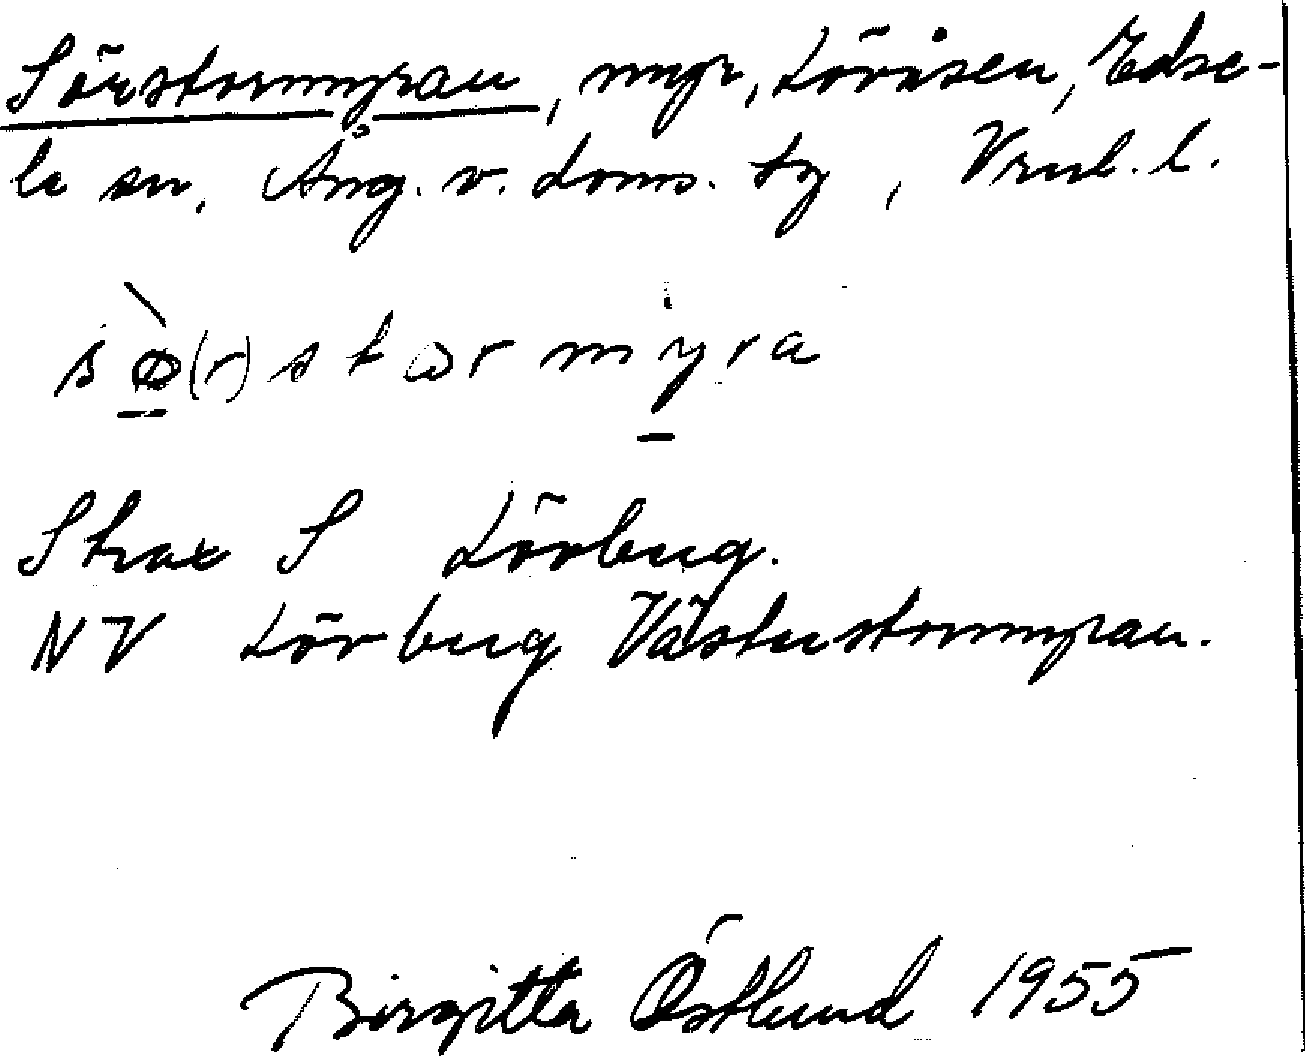 Sörstormyran, myr, Lövåsen, Edse-
le sn. Ång. v. doms. tg, Vnrl. l.
sö(r)stormyra
Strax S Lövbug.
NV Lövbug Västerstormyran.
Birgitta Östlund 1955